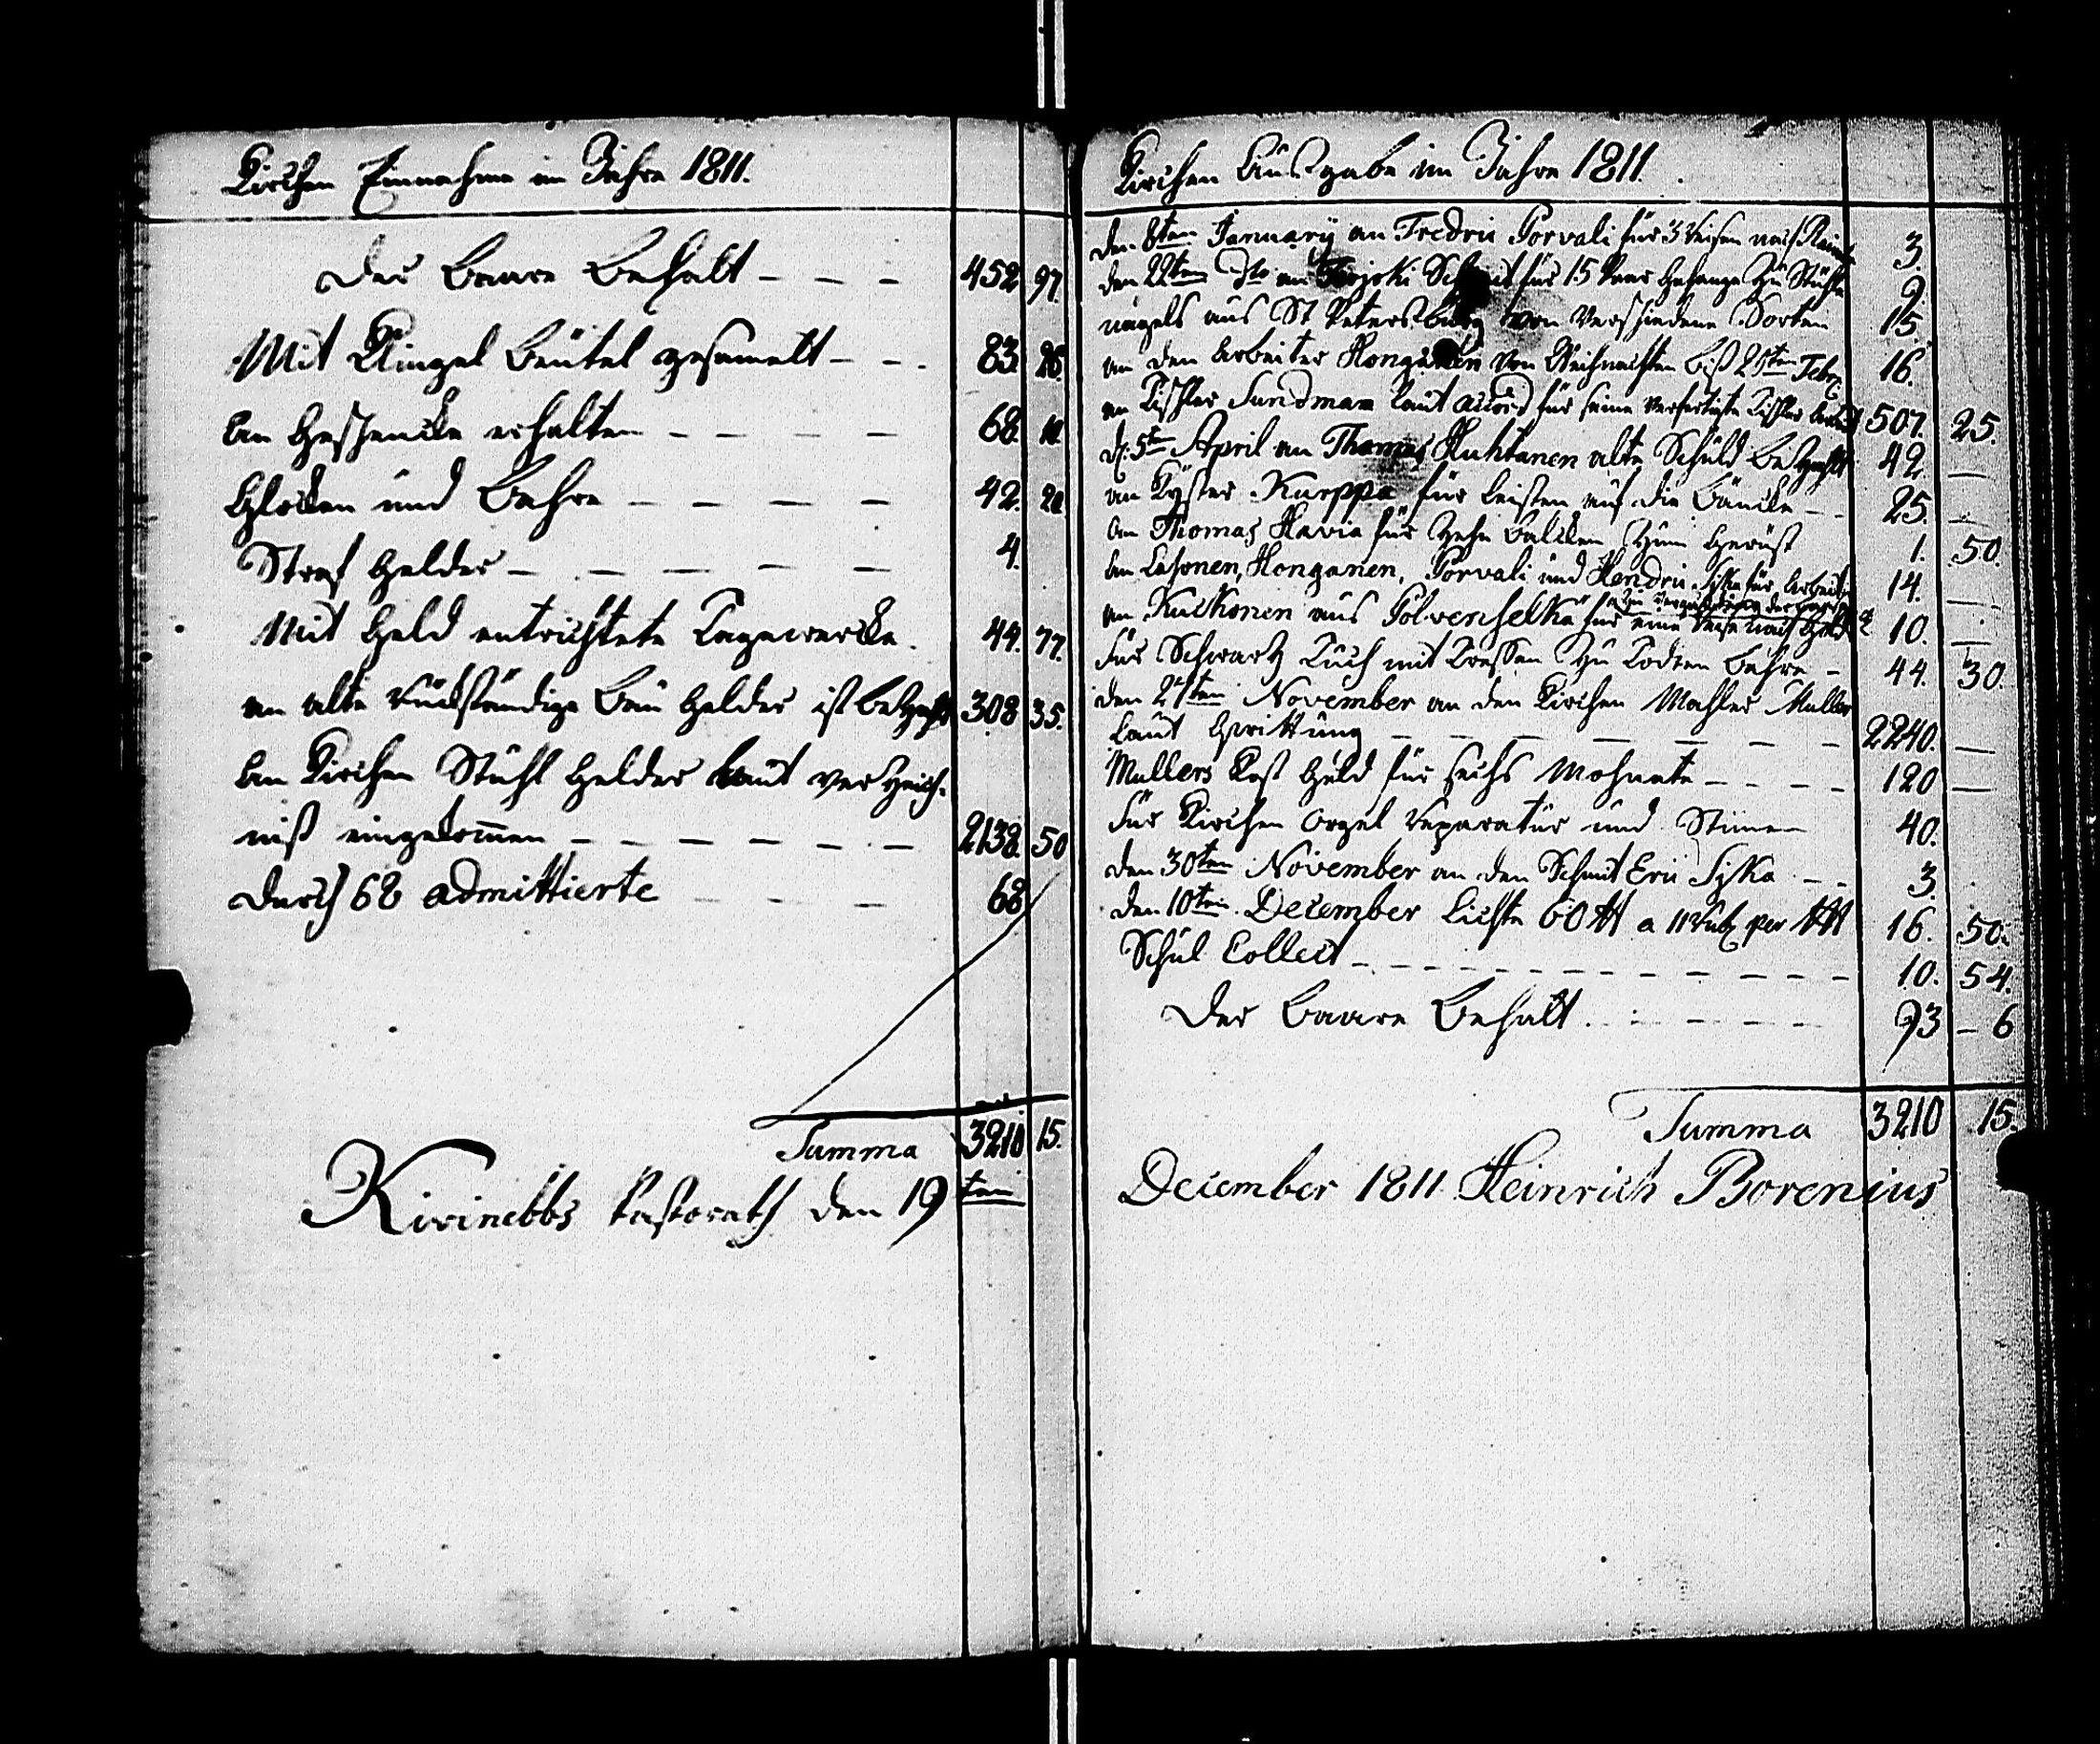 Kirchen Einnahme im Jahre 1811.
Der baare Behalt - - - 452 97.
Mit Klingel Beütel gesamelt - - - 83. 26.
An Geschencke erhalten - - - - 68. 10.
Glocken und Bahre - - - - 42. 20
Straf Gelder - - - - - 4.
Mit Geld entrichtete Tagewercke. 44. 77.
an alte rückständige Bau Gelder ist bezahlt 308 35.
An Kirchen Stuhl Gelder laut verzeich-
niß eingekom̄en - - - - - - 2138. 50
durch 68 admittierte - - - 68
Summa 3210 15.
Kirinebbs Pastorath den 19ten
Kirchen Ausgabe im Jahre 1811.
den 8ten January an Fredric Porvali für 3 Reisen nach 3.
den 22ten Dto an für 15 Paar Gehänge zu Stühle 9.
nägels aus St Petersburg von verschiedene Sorten 15.
an den Arbeiter Honganen von Weihnachten biß 25ten Febr: 16.
an Tischler Sundman laut accord für seine verfertigte Tischler Arbeit 507. 25.
d: 5ten April an Thomas Huhtanen alte Schuld bezahlt 42. —
an Cÿster Kurppa für Leisten auf die Bäncke - - 25. —
An Thomas Havia für zehn Balcken zum Gerüst 1. 50.
An Honganen, Porvali und Hendric Sjka für Arbeit 14. —
an Kuckonen aus Polvenselkä für eine Reise nach 10. —
für Schwartz Tuch mit Tressen zu Todten Bahre - 44. 30.
den 27ten November an den Kirchen Mahler Muller
laut Qwittung - - - - - - - 2240. —
Mullers Kost Geld für sechs Mohnate - - - - 120 —
für Kirchen Orgel Reparatur und Stimen 40.
den 30ten November an den Schmit Eric Sjka - - 3.
den 10ten December Lichte 60 ℔ a 11 Rub per ℔℔ 16. 50.
Schul Collect - - - - - - - - - - 10. 54.
Der baare Behalt - - - - - 93 - 6
Summa 3210 15.
December 1811. Heinrich Borenius